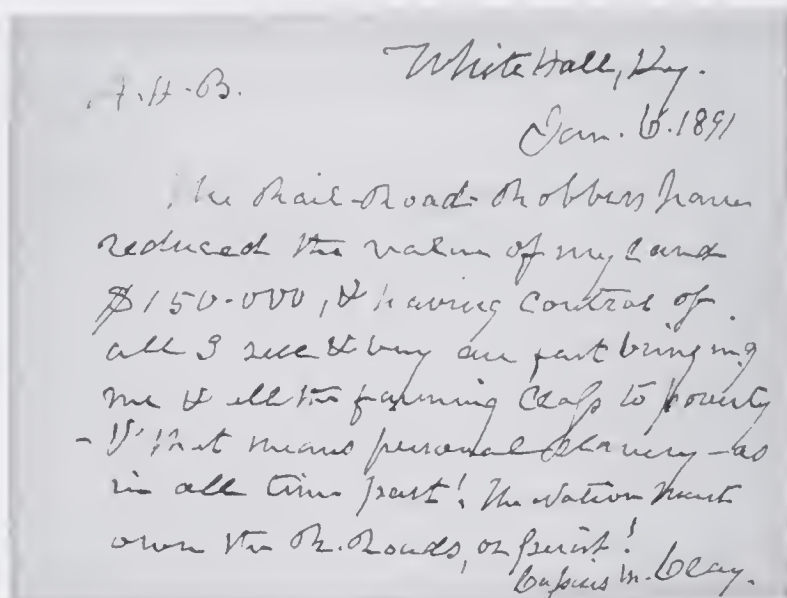 White Hall, Ky.
A. H. B.
Jan. 6. 1891
The Rail-Road-Robbers have
reduced the value of my land
$150-000, & having control of
all I sell & buy are fast bringing
me & all the farming class to poverty
- & that means personal slavery - as
in all time past! The Nation must
own the R. Roads, or perish!
Cassius M. Clay.